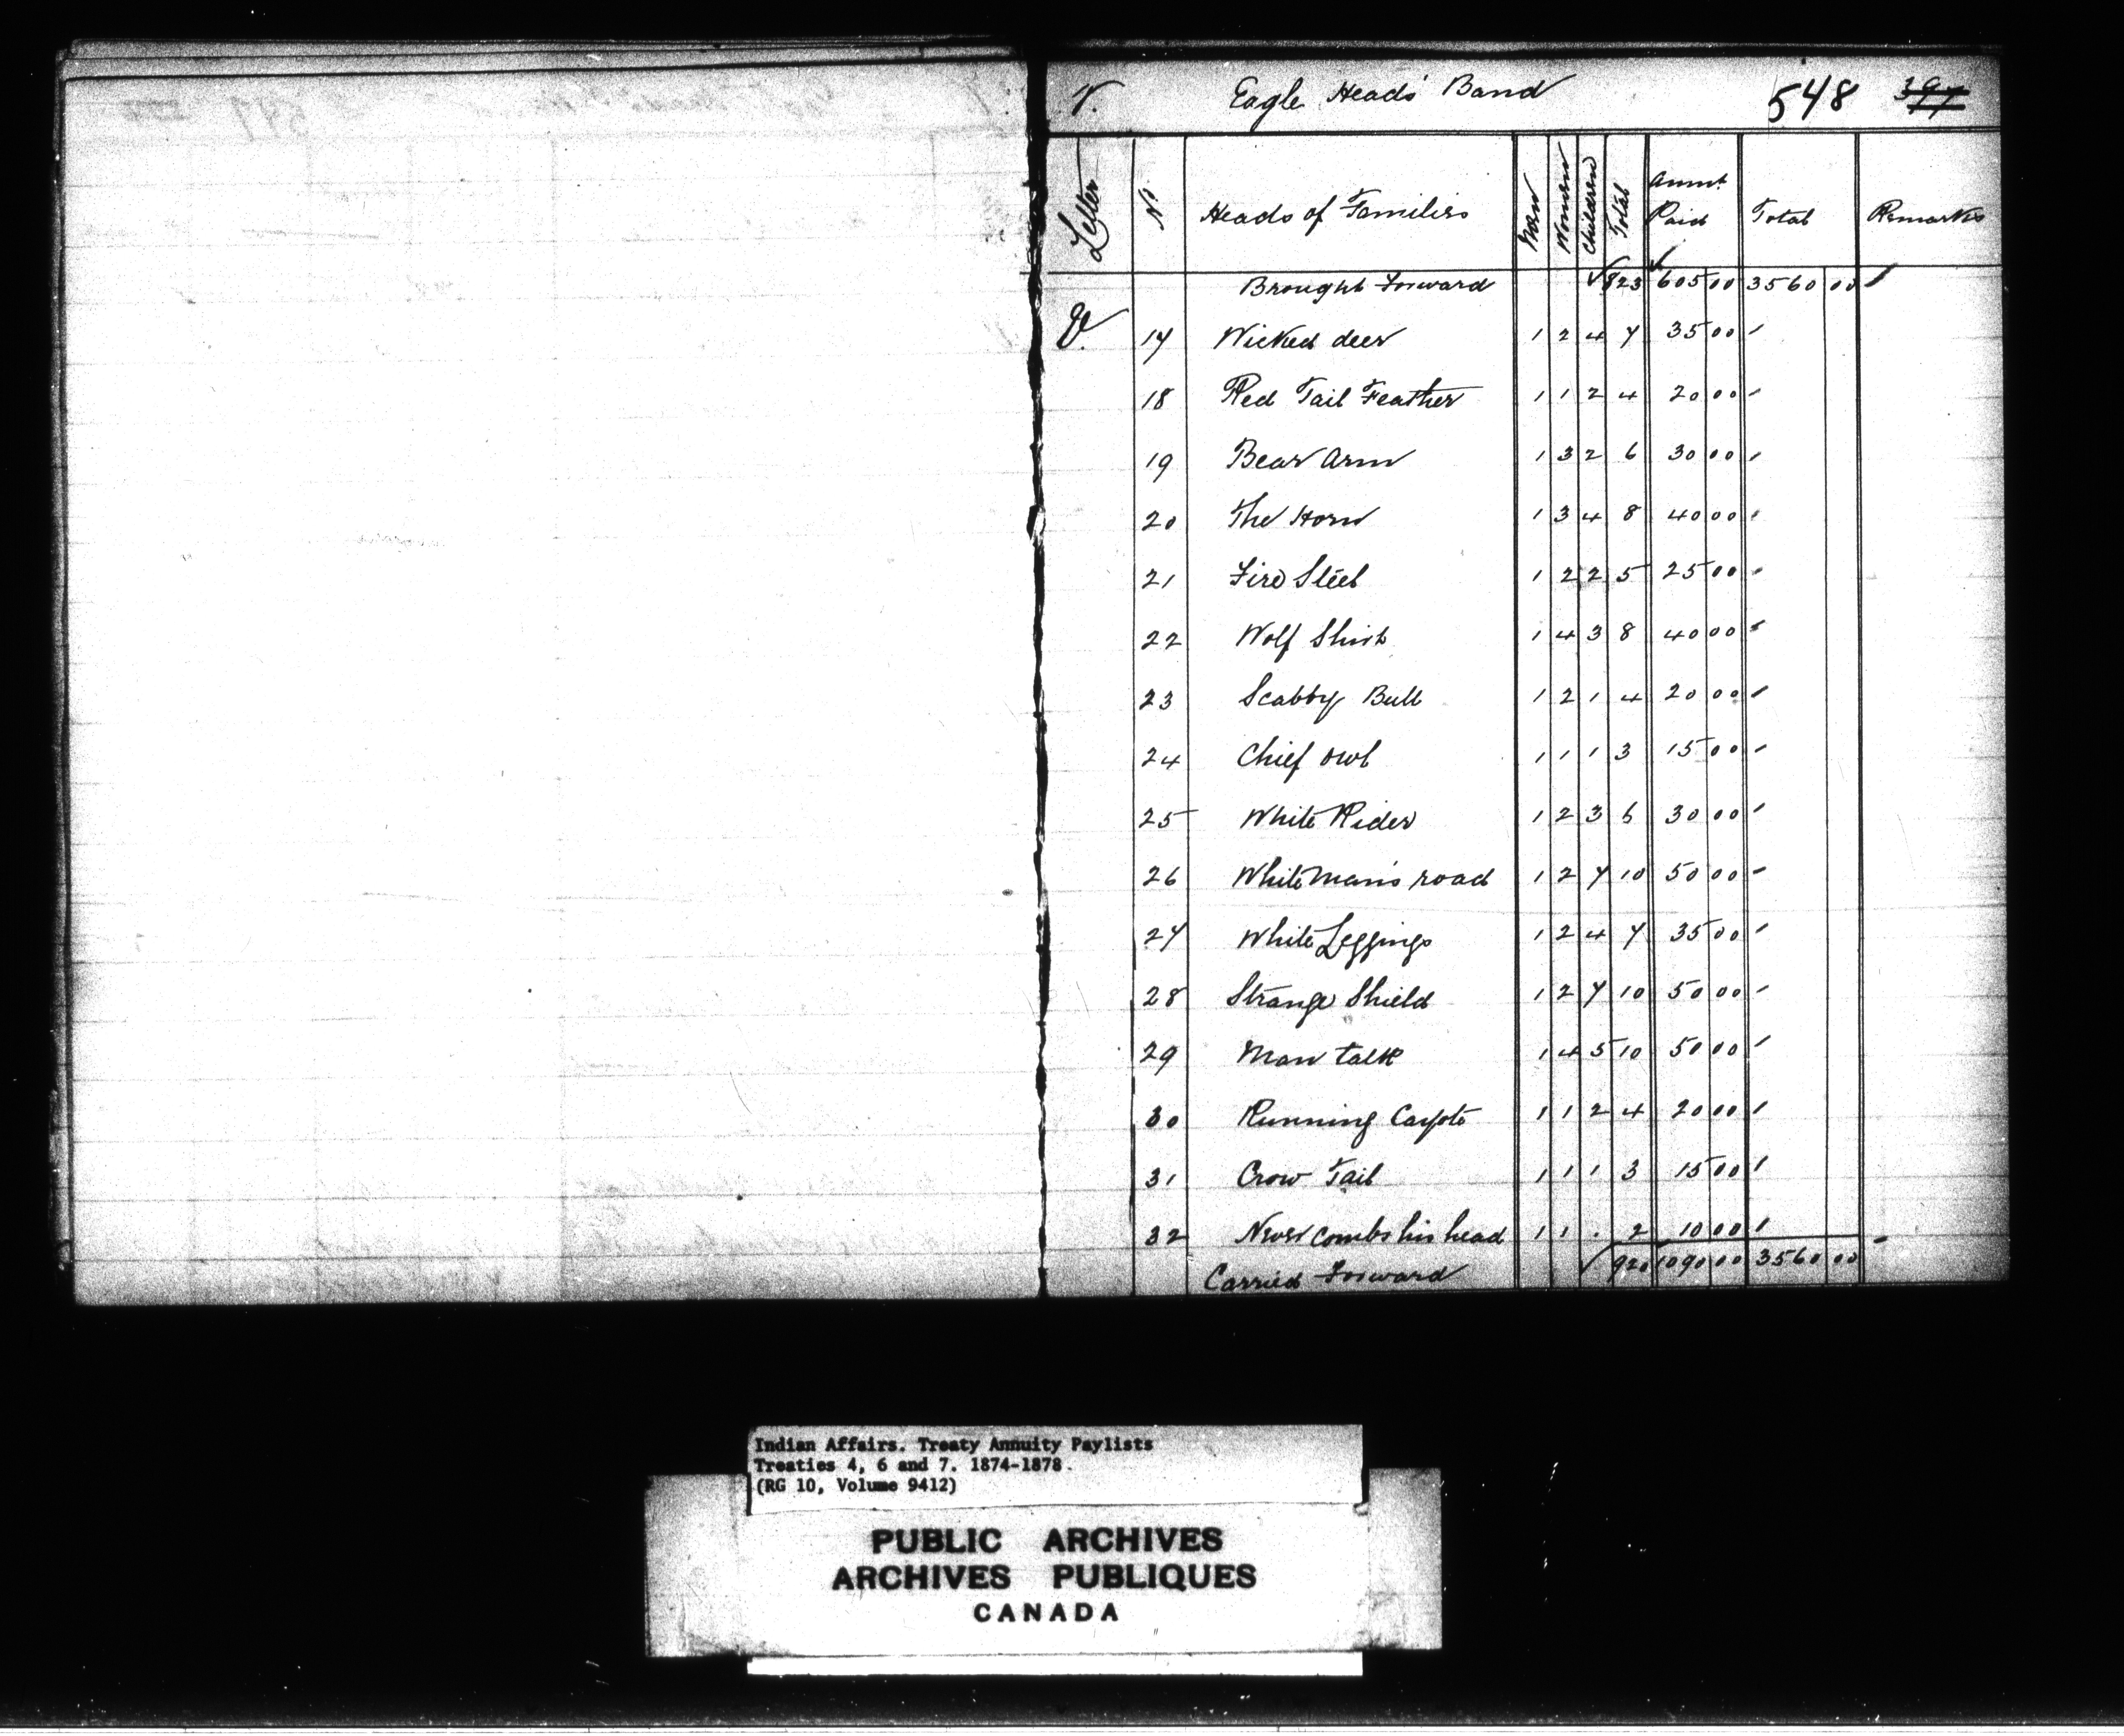 V. Eagle Heads' Band 548 397
Letter No Heads of Families Men Women Children Total Amnt Paid Total Remarks
Brought Forward 823 605 00 3560 00
V. 17 Wicked deer 1 2 4 7 35 00
18 Red Tail Feather 1 1 2 4 20 00
19 Bear Arm 1 3 2 6 30 00
20 The Horn 1 3 4 8 40 00
21 Fire Steel 1 2 2 5 25 00
22 Wolf Shirt 1 4 3 8 40 00
23 Scabby Bull 1 2 1 4 20 00
24 Chief Owl 1 1 1 3 15 00
25 White Rider 1 2 3 6 30 00
26 White Man's road 1 2 7 10 50 00
27 White Leggings 1 2 4 7 35 00
28 Strange Shield 1 2 7 10 50 00
29 Man talk 1 4 5 10 50 00
30 Running Cayote 1 1 2 4 20 00
31 Crow Tail 1 1 1 3 15 00
32 Never combs his head 1 1 . 2 10 00
Carried Forward 920 1090 00 3560 00
Indian Affairs. Treaty Annuity Paylists
Treaties 4, 6 and 7. 1874-1878.
(RG 10, Volume 9412)
PUBLIC ARCHIVES
ARCHIVES PUBLIQUES
CANADA